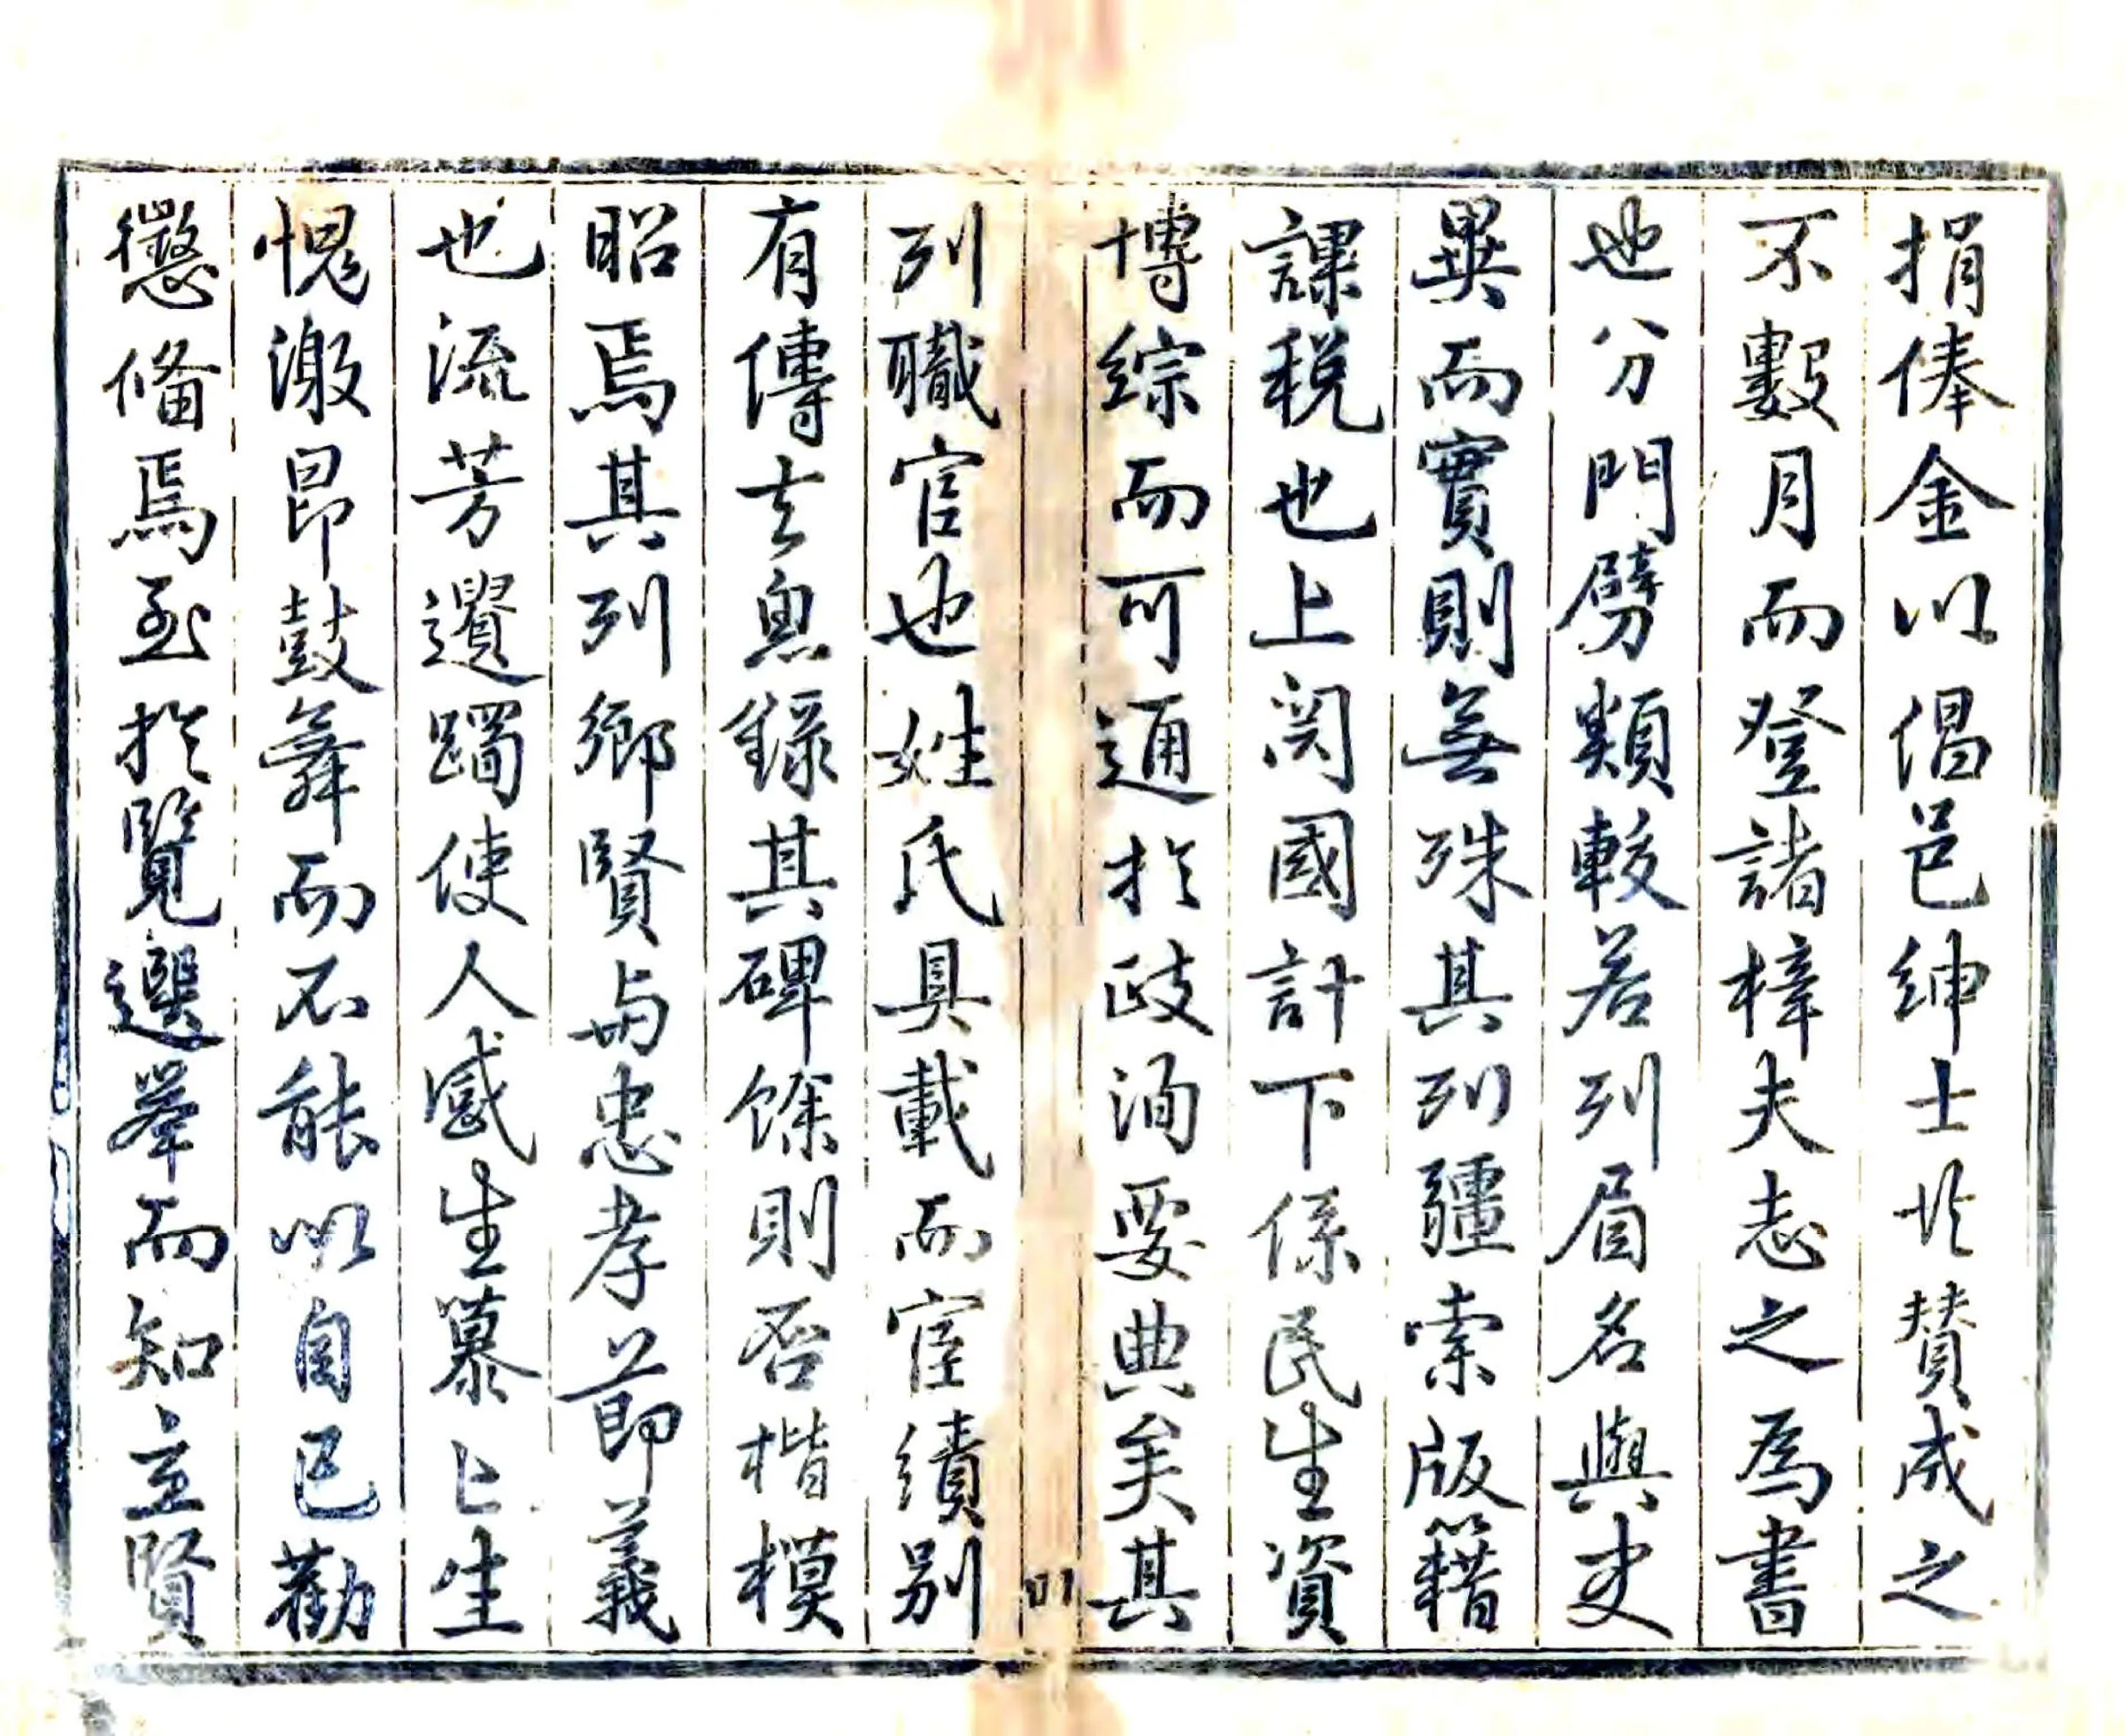 捐俸金以倡邑紳士共贊成之
不數月而登諸梓夫志之為書
也分門劈類較若列眉名與史
異而實則無殊其列疆索版籍
課税也上関國計下係民生資
博綜而可通於政洵要典矣其
列職官也姓氏具載而宦績別
有傳去思錄其碑餘則否楷模
昭焉其列鄉賢与忠孝節義
也流芳遺躅使人感生慕〻生
愧激昂鼓舞而不能以自已勸
懲俻焉至於覽選舉而知立賢